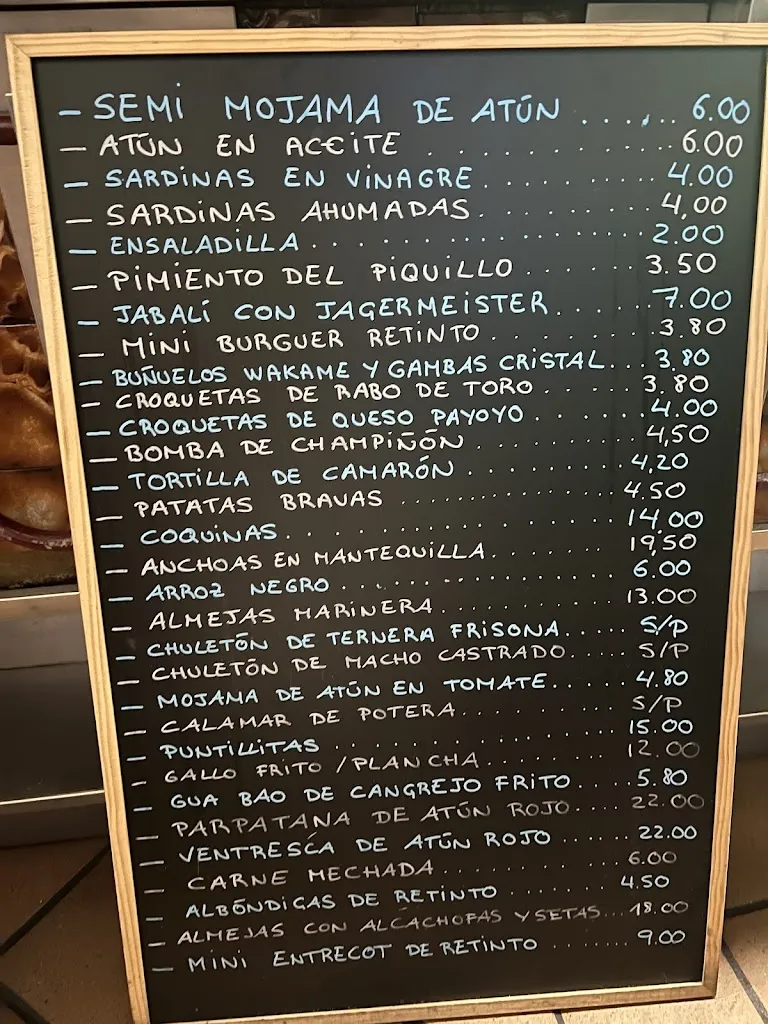 - SEMI MOJAMA DE ATÚN ...... 6.00
- ATÚN EN ACEITE .......... 6.00
- SARDINAS EN VINAGRE ........ 4.00
- SARDINAS AHUMADAS ........ 4,00
- ENSALADILLA .............. 2.00
- PIMIENTO DEL PIQUILLO ...... 3.50
- JABALÍ CON JAGERMEISTER ..... 7.00
- MINI BURGUER RETINTO ........ 3.80
- BUÑUELOS WAKAME Y GAMBAS CRISTAL... 3.80
- CROQUETAS DE RABO DE TORO ..... 3.80
- CROQUETAS DE QUESO PAYOYO ...... 4.00
- BOMBA DE CHAMPIÑÓN ........ 4,50
- TORTILLA DE CAMARÓN ........ 4,20
- PATATAS BRAVAS ............ 4.50
- COQUINAS ................ 14.00
- ANCHOAS EN MANTEQUILLA ....... 19,50
- ARROZ NEGRO .............. 6.00
- ALMEJAS MARINERA .......... 13.00
- CHULETÓN DE TERNERA FRISONA ..... S/P
- CHULETÓN DE MACHO CASTRADO ..... S/P
- MOJAMA DE ATÚN EN TOMATE ..... 4.80
- CALAMAR DE POTERA ......... S/P
- PUNTILLITAS .............. 15.00
- GALLO FRITO / PLANCHA ....... 12.00
- GUA BAO DE CANGREJO FRITO .... 5.80
- PARPATANA DE ATÚN ROJO .... 22.00
- VENTRESCA DE ATÚN ROJO ...... 22.00
- CARNE MECHADA .......... 6.00
- ALBÓNDIGAS DE RETINTO ....... 4.50
- ALMEJAS CON ALCACHOFAS Y SETAS... 18.00
- MINI ENTRECOT DE RETINTO ....... 9.00